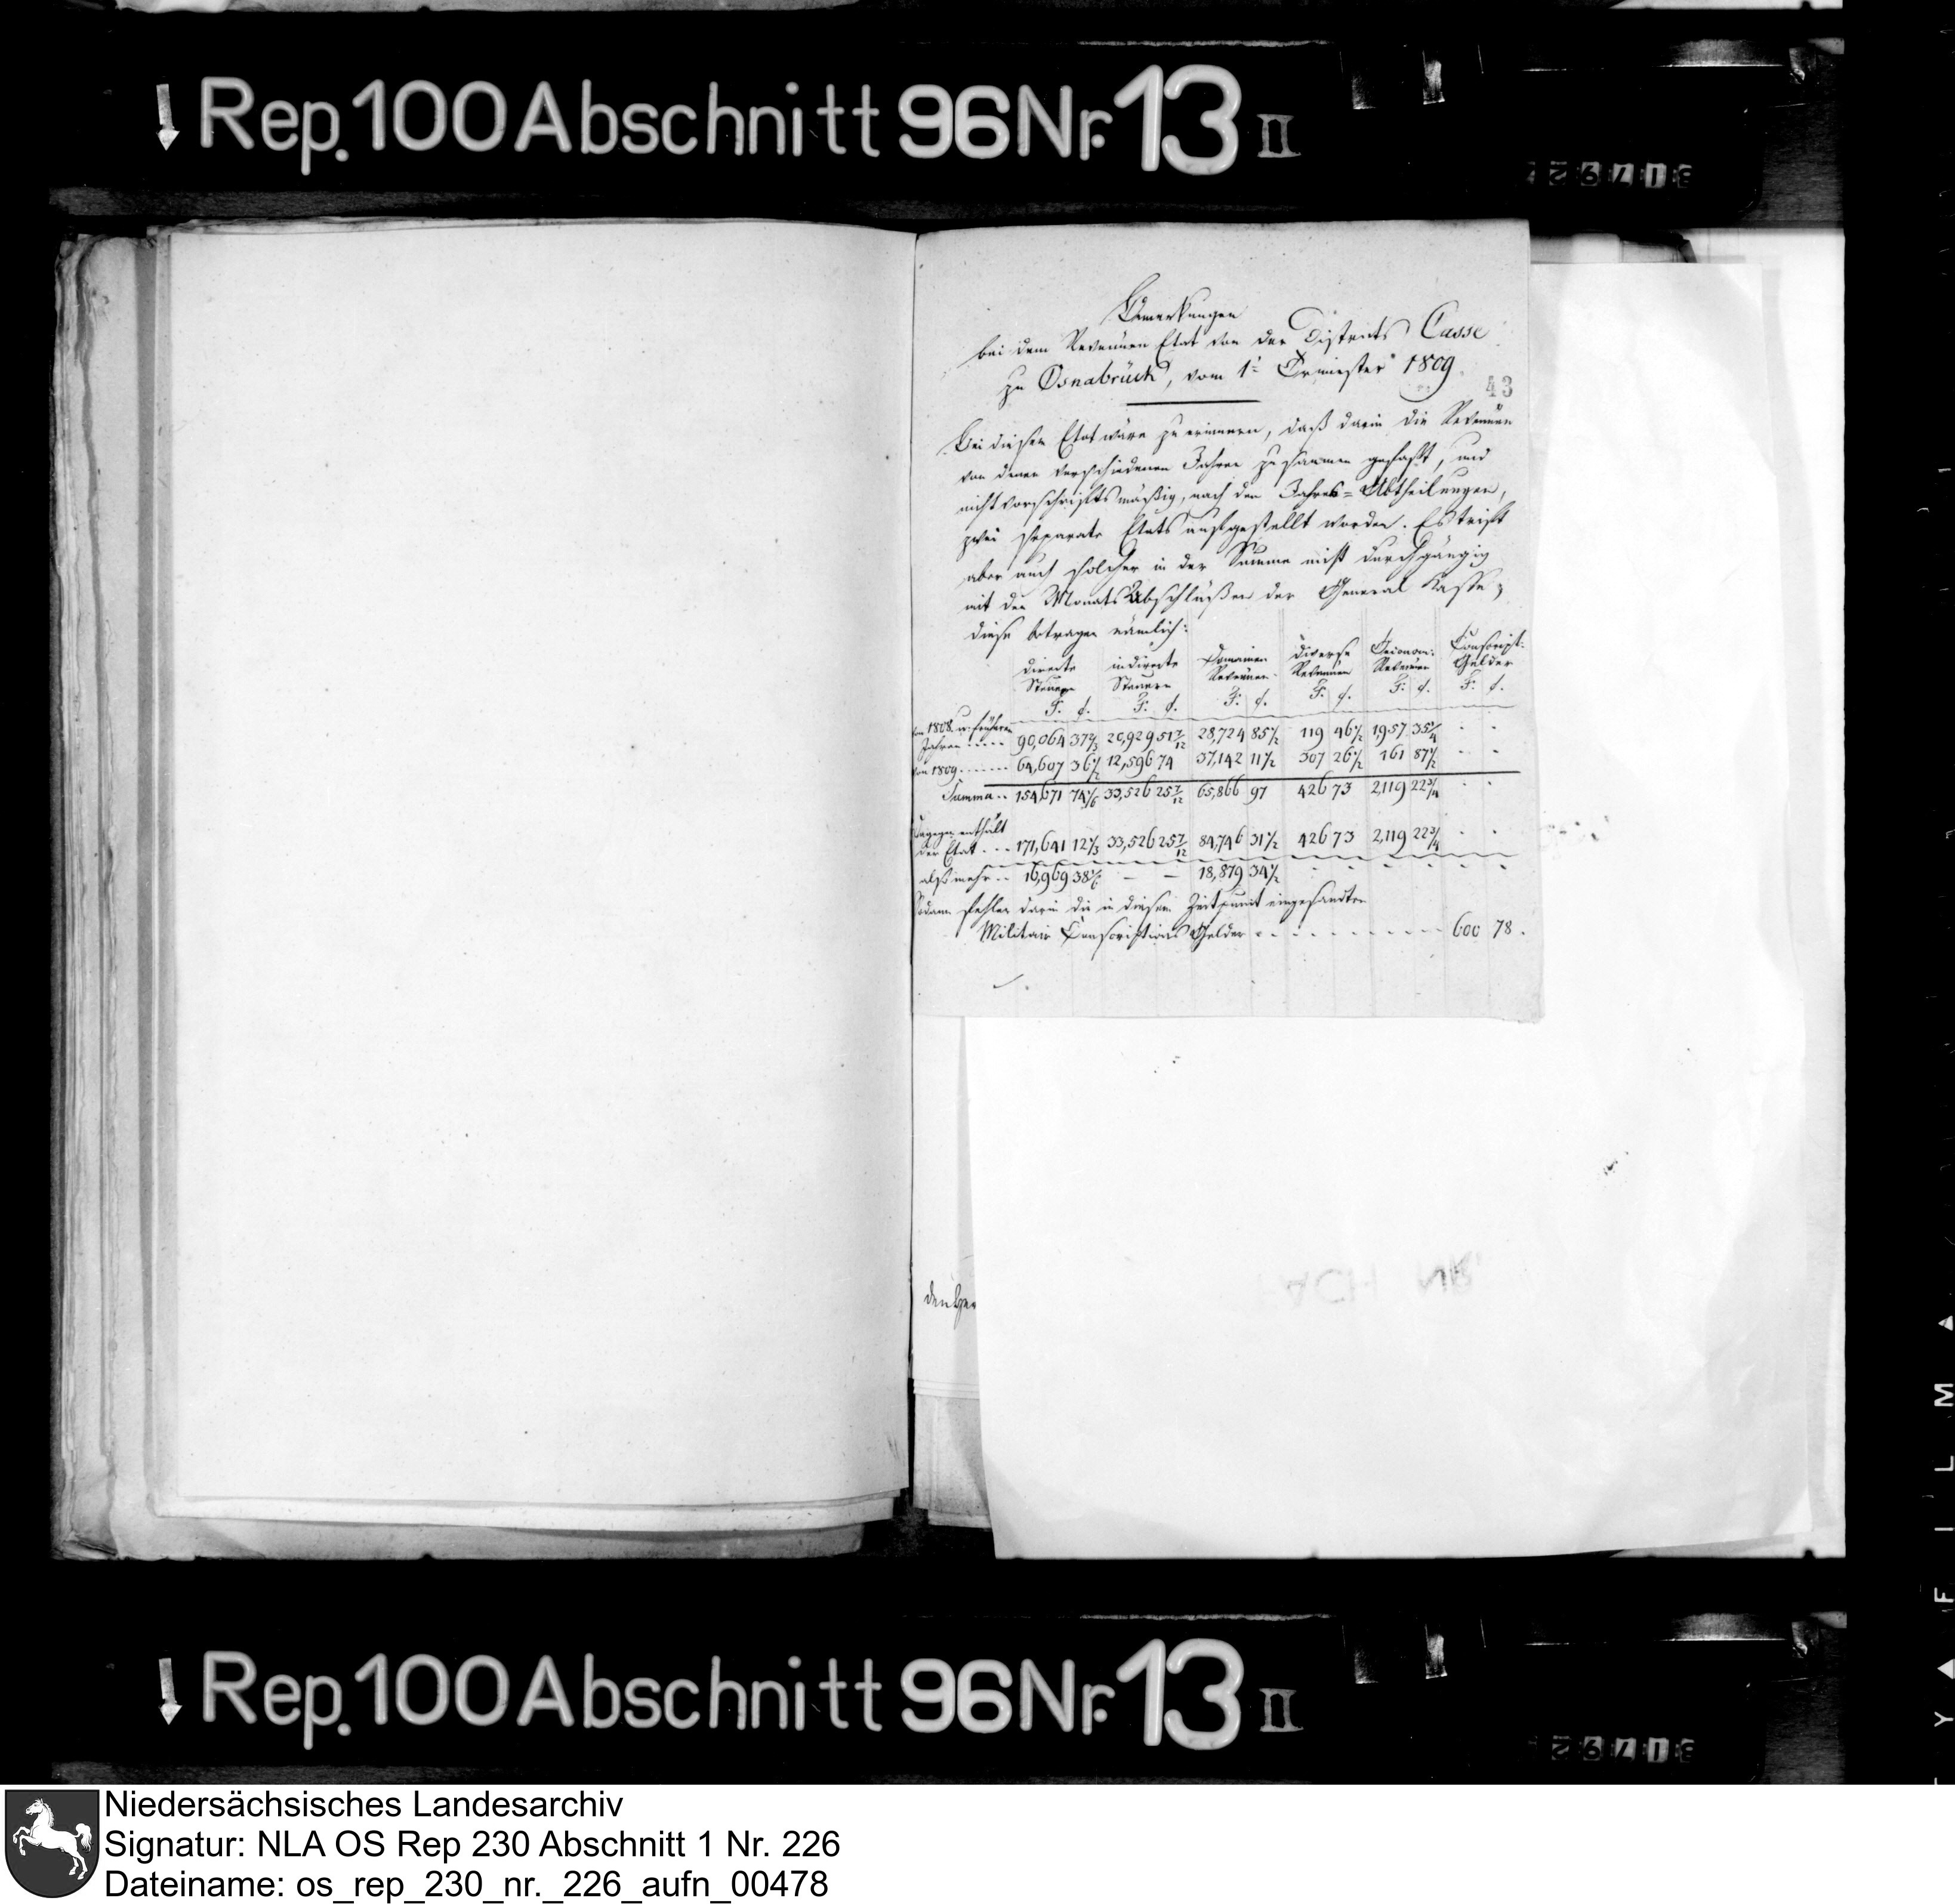 Rep. 100 Abschnitt 96 Nr. 13 II
Bemerkungen
bei dem Revenüen Etat von der Districts Casse
zu Osnabrück, vom 1ⁿ Trimester 1809.
43
Bei diesem Etat wäre zu erinnern, daß darin die Revenüen
von denen verschiedenen Jahren zusammen gefaßt, und
nicht vorschriftsmäßig, nach den Jahres=Abtheilungen,
zwei separate Etats aufgestellt worden. Es trift
aber auch solcher in der Summe nicht durchgängig
mit den Monats Abschlüßen der General Kasse;
diese betragen nämlich:
directe Steuern indirecte Steuern Domainen Revenüen. diverse Revenüen Revenüen Conscript: Gelder
F. c. F. c. F. c. F. c. F. c. F. c.
von 1808 u. früheren
Jahren ..... 90,064 37⅔ 20,929 51 7/12 28,724 85½ 119 46½ 1,957 35¼ . .
von 1809 ...... 64,607 36½ 12,596 74 37,142 11½ 307 26½ 161 87½ . .
Summa .. 154,671 74⅙ 33,526 25 7/12 65,866 97 426 73 2,119 22¾ . .
Dagegen enthält
der Etat ... 171,641 12⅓ 33,526 25 7/12 84,746 31½ 426 73 2,119 22¾ . .
also mehr .. 16,969 38⅙ — — 18,879 34½ . . . . . .
Sodann fehlen darin die in diesem Zeitpunct eingesandten
Militair Conscriptions Gelder ............ 600 78.
FACH NR.
Rep. 100 Abschnitt 96 Nr. 13 II
Niedersächsisches Landesarchiv
Signatur: NLA OS Rep 230 Abschnitt 1 Nr. 226
Dateiname: os_rep_230_nr._226_aufn_00478